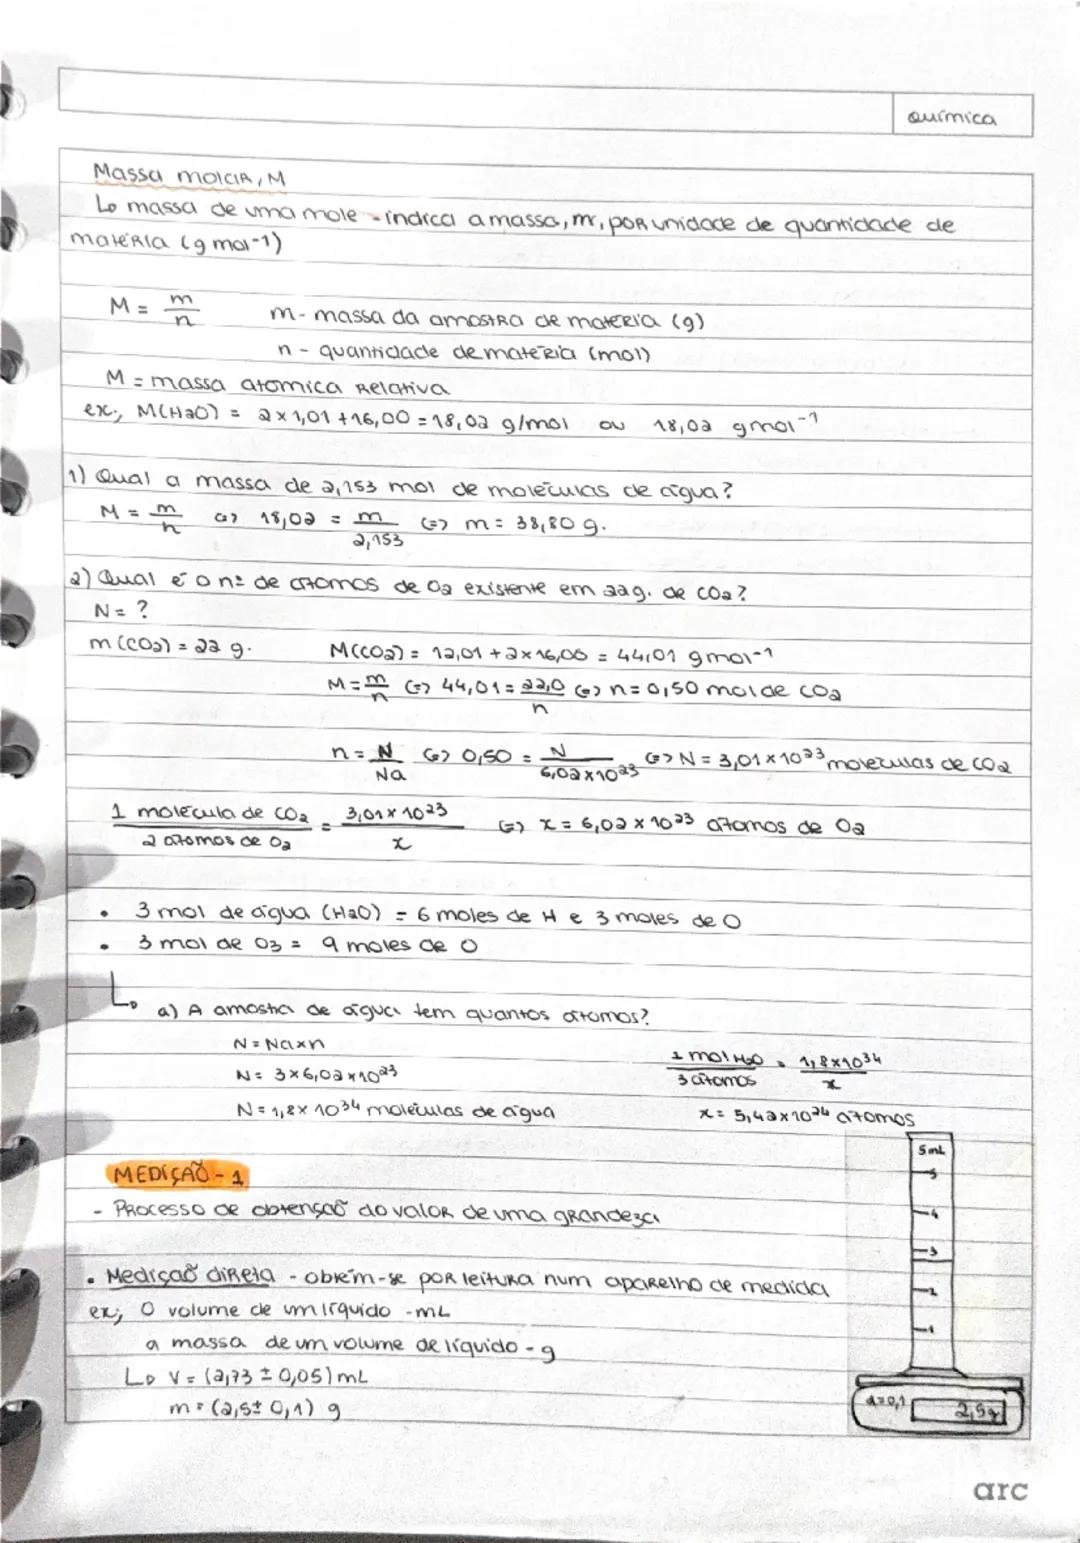 química
Massa molar, M
↳ massa de uma mole - indica a massa, m, por unidade de quantidade de
matéria (g mol-1)
M = m/n m - massa da amostra de matéria (g)
n - quantidade de matéria (mol)
M = massa atómica Relativa
ex., M(H2O) = 2x1,01 +16,00 = 18,02 g/mol ou 18,02 gmol-1
1) Qual a massa de 2,153 mol de moléculas de água?
M = m/n (=) 18,02 = m/2,153 (=) m = 38,80 g.
2) Qual é o nº de átomos de O2 existente em 22g. de CO2?
N = ?
m (CO2) = 22 g. M(CO2) = 12,01 +2x16,00 = 44,01 gmol-1
M = m/n (=) 44,01 = 22,0/n (=) n = 0,50 mol de CO2
n = N/Na (=) 0,50 = N/6,02x10^23 (=) N = 3,01x10^23 moléculas de CO2
1 molécula de CO2/2 átomos de O2 = 3,01x10^23/x (=) x = 6,02x10^23 átomos de O2
• 3 mol de água (H2O) = 6 moles de H e 3 moles de O
• 3 mol de O3 = 9 moles de O
↳ a) A amostra de água tem quantos átomos?
N = Naxn
1 mol H2O/3 átomos = 1,8x10^34/x
N = 3x6,02x10^23
N = 1,8x10^34 moléculas de água x = 5,42x10^24 átomos
5mL
5
4
3
2
1
MEDIÇÃO - 1
- Processo de obtenção do valor de uma grandeza
• Medição direta - obtém-se por leitura num aparelho de medida
ex; O volume de um líquido - mL
a massa de um volume de líquido - g
↳ V = (2,73 ± 0,05) mL
m = (2,5 ± 0,1) g
d=0,1 2,5g
arc